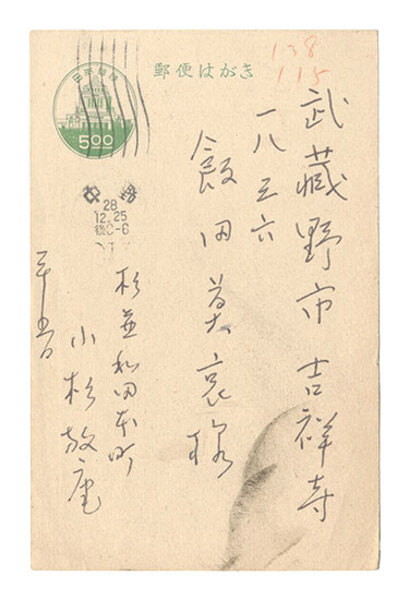 138
115
郵便はがき
日本郵便
5.00
28
12.25
後0-6
武蔵野市吉祥寺
一八三六
飯田莫哀様
杉並和田本町
小杉放庵